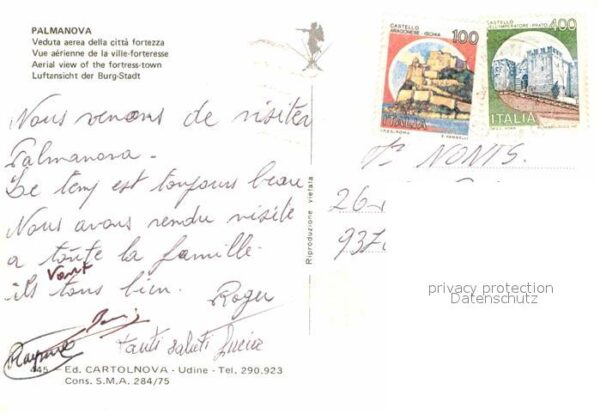 PALMANOVA
Veduta aerea della città fortezza
Vue aérienne de la ville-forteresse
Aerial view of the fortress-town
Luftansicht der Burg-Stadt
CASTELLO
ARAGONESE - ISCHIA
100
ITALIA
CASTELLO
DELL'IMPERATORE - PRATO
400
ITALIA
Nous venons de visiter
Palmanova -
Le temp est toujours beau
Nous avons rendu visite
a toute la famille.
ils vont tous bien.
Roger
tanti saluti
NONTS.
26
937
Riproduzione vietata
privacy protection
Datenschutz
445 - Ed. CARTOLNOVA - Udine - Tel. 290.923
Cons. S.M.A. 284/75